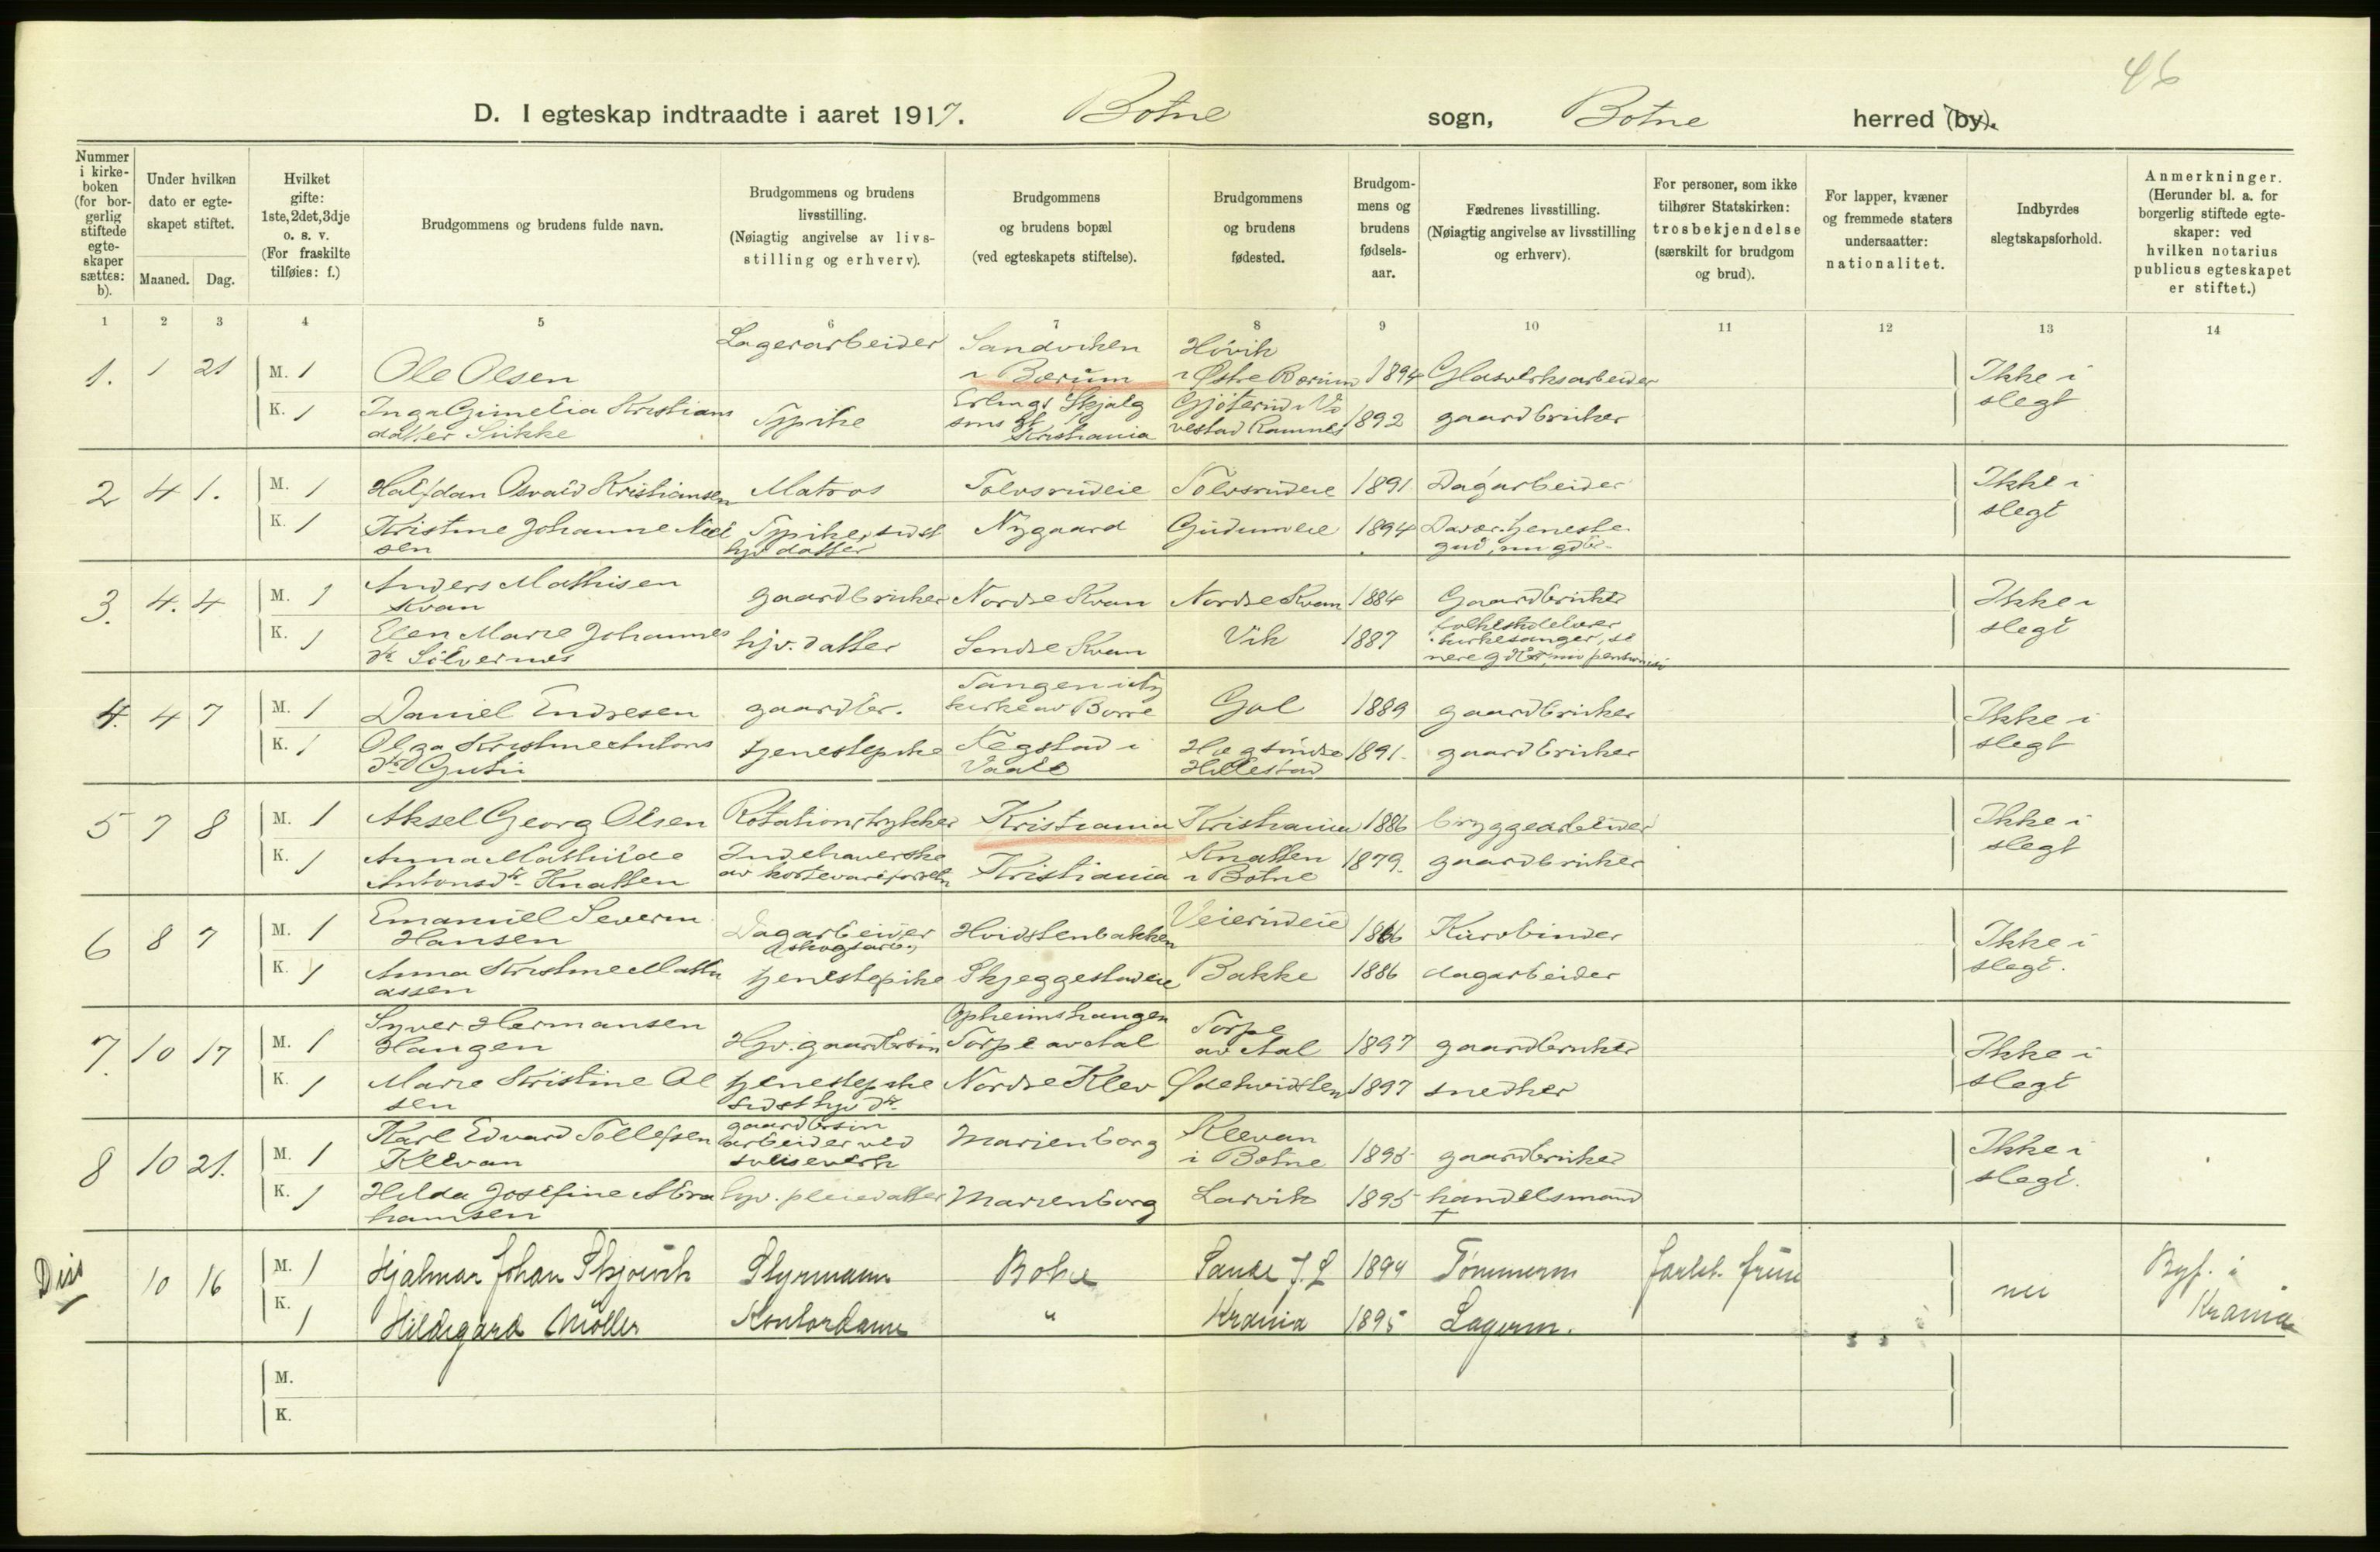 46
D. I egteskap indtraadte i aaret 1917. Botne sogn, Botne herred (by).
Nummer i kirkeboken (for borgerlig stiftede egteskaper sættes: b).
Under hvilken dato er egteskapet stiftet.
Maaned. Dag.
Hvilket gifte: 1ste, 2det, 3dje o. s. v. (For fraskilte tilføies: f.)
Brudgommens og brudens fulde navn.
Brudgommens og brudens livsstilling. (Nøiagtig angivelse av livsstilling og erhverv).
Brudgommens og brudens bopæl (ved egteskapets stiftelse).
Brudgommens og brudens fødested.
Brudgommens og brudens fødselsaar.
Fædrenes livsstilling. (Nøiagtig angivelse av livsstilling og erhverv).
For personer, som ikke tilhører Statskirken: trosbekjendelse (særskilt for brudgom og brud).
For lapper, kvæner og fremmede staters undersaatter: nationalitet.
Indbyrdes slegtskapsforhold.
Anmerkninger. (Herunder bl. a. for borgerlig stiftede egteskaper: ved hvilken notarius publicus egteskapet er stiftet.)
1 2 3 4 5 6 7 8 9 10 11 12 13 14
1. 1 21 M. 1 Ole Olsen Lagerarbeider Sandviken i Bærum Høvik i Østre Bærum 1894 Glasverksarbeider Ikke i slegt
K. 1 Inga Gimelia Kristiansdatter Sukke Typike Erlings Skjalgsøns gt Kristiania Gjøterud i Vivestad Ramnes 1892 gaardbruker
2 4 1. M. 1 Halfdan Osvald Kristiansen Matros Tolvsrudeie Tolvsrudeie 1891 Dagarbeider Ikke i slegt
K. 1 Kristine Johanne Nielsen Typike, sidst hjv datter Nygaard Gudumeie 1894 Daver. tjenestegut, nu gdbr.
3. 4. 4 M. 1 Anders Mathisen Kvan gaardbruker Nordre Kvan Nordre Kvan 1884 Gaardbruker Ikke i slegt
K. 1 Elen Marie Johannesdr. Solvernes hjv. datter Søndre Kvan Vik 1887 folkeskolelærer kirkesanger, senere gdbr, nu pensionist
4. 4 7 M. 1 Daniel Endresen gaardbr. Tangen i Nykirke av Borre Gol 1889 gaardbruker Ikke i slegt
K. 1 Olga Kristine Antonsdtr Gutu tjenestepike Fegstad i Vaale Hægsundre Hillestad 1891. gaardbruker
5 7 8 M. 1 Aksel Georg Olsen Rotationstrykker Kristiania Kristiania 1886 bryggearbeider Ikke i slegt
K. 1 Anna Mathilde Antonsdr. Knatten Indehaverske av kortevareforretn Kristiania Knatten i Botne 1879. gaardbruker
6 8 7 M. 1 Emanuel Severin Hansen Dagarbeider (skogsarb.) Hvidstenbakken Veierudeie 1866 Kurvbinder Ikke i slegt.
K. 1 Anna Kristine Mathiassen tjenestepike Skjeggestadeie Bakke 1886 dagarbeider
7. 10 17 M. 1 Syver Hermansen Haugen Hjv. gaardbrsøn Opheimshaugen Torpe av Aal Torpe av Aal 1897 gaardbruker Ikke i slegt
K. 1 Marie Kristine Olsen tjenestepike sidst hjv dr. Nordre Klev Ødehvidsten 1897 snedker
8 10 21. M. 1 Karl Edvard Tollefsen Klevan gaardbrsøn arbeider ved sølvsverk Marienborg Klevan i Botne 1895 gaardbruker Ikke i slegt.
K. 1 Hilda Josefine Abrahamsen hjv. pleiedatter Marienborg Larvik 1895 handelsmand +
Diss 10 16 M. 1 Hjalmar Johan Skjørvik Styrmann Botne Sande J. L 1894 Tømmerm nei Byf. i Krania
K. 1 Hildegard Møller Kontordame " Krania 1895 Lagerm.
M.
K.